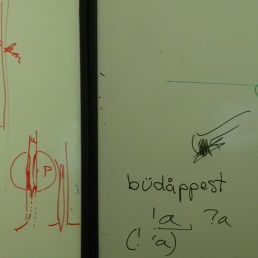 P
büdåppest
!a ?a
(! 'a)